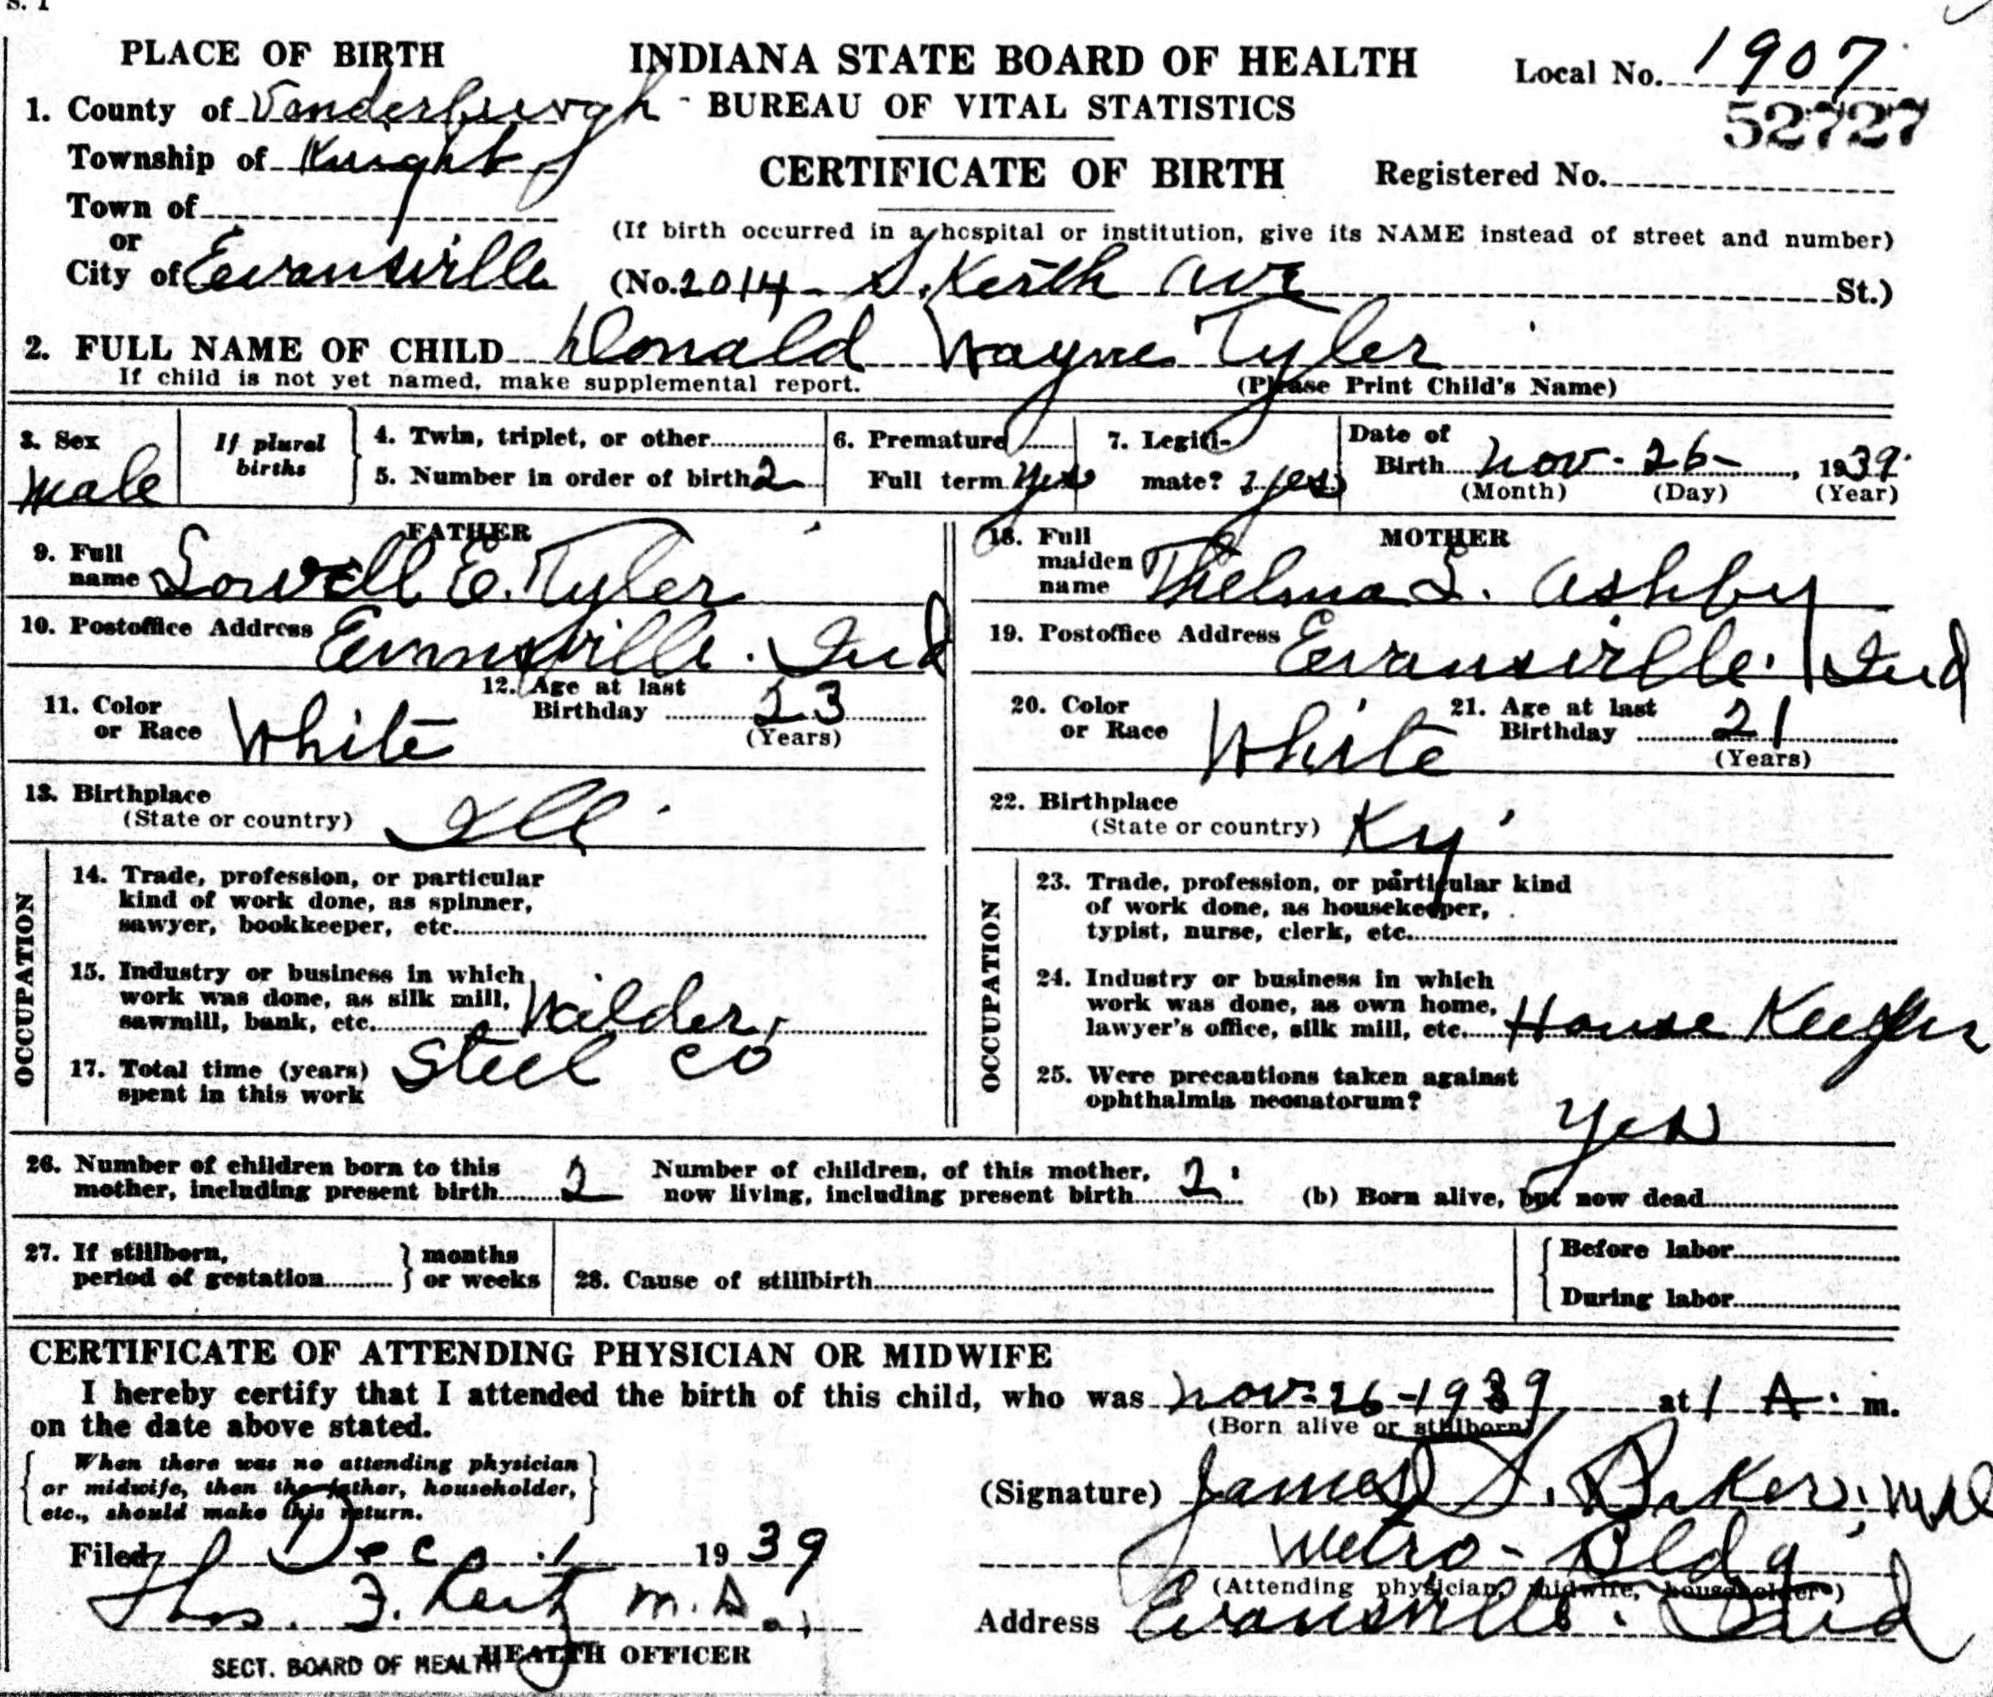 S. 1
PLACE OF BIRTH
INDIANA STATE BOARD OF HEALTH
Local No. 1907
1. County of Vanderburgh
BUREAU OF VITAL STATISTICS
52727
Township of Knight
CERTIFICATE OF BIRTH
Registered No.
Town of
or
(If birth occurred in a hospital or institution, give its NAME instead of street and number)
City of Evansville
(No. 2014 S. Kerth Ave St.)
2. FULL NAME OF CHILD Donald Wayne Tyler
If child is not yet named, make supplemental report.
(Please Print Child's Name)
3. Sex
Male
If plural
births
4. Twin, triplet, or other
5. Number in order of birth 2
6. Premature
Full term Yes
7. Legiti-
mate? Yes
Date of
Birth Nov - 26 - , 1939.
(Month) (Day) (Year)
FATHER
9. Full
name Lowell E. Tyler
10. Postoffice Address Evansville. Ind
11. Color
or Race White
12. Age at last
Birthday 23
(Years)
13. Birthplace
(State or country) Ill
OCCUPATION
14. Trade, profession, or particular
kind of work done, as spinner,
sawyer, bookkeeper, etc.
15. Industry or business in which
work was done, as silk mill,
sawmill, bank, etc.
17. Total time (years) Steel Co
spent in this work
MOTHER
18. Full
maiden
name Thelma L. Ashby
19. Postoffice Address Evansville. Ind
20. Color
or Race White
21. Age at last
Birthday 21
(Years)
22. Birthplace
(State or country) Ky
OCCUPATION
23. Trade, profession, or particular kind
of work done, as housekeeper,
typist, nurse, clerk, etc.
24. Industry or business in which
work was done, as own home,
lawyer's office, silk mill, etc. House Keeper
25. Were precautions taken against
ophthalmia neonatorum? Yes
26. Number of children born to this
mother, including present birth 2
Number of children, of this mother,
now living, including present birth 2
(b) Born alive, but now dead
27. If stillborn,
period of gestation
months
or weeks
28. Cause of stillbirth
Before labor
During labor
CERTIFICATE OF ATTENDING PHYSICIAN OR MIDWIFE
I hereby certify that I attended the birth of this child, who was Nov-26-1939 at 1 A. m.
on the date above stated.
(Born alive or stillborn)
When there was no attending physician
or midwife, then the father, householder,
etc., should make this return.
(Signature) James S. Baker, MD
Metro - Bldg
(Attending physician, midwife, householder)
Filed Dec. 1 1939
Thos. F. Reitz M.D.
Address Evansville. Ind
HEALTH OFFICER
SECT. BOARD OF HEALTH